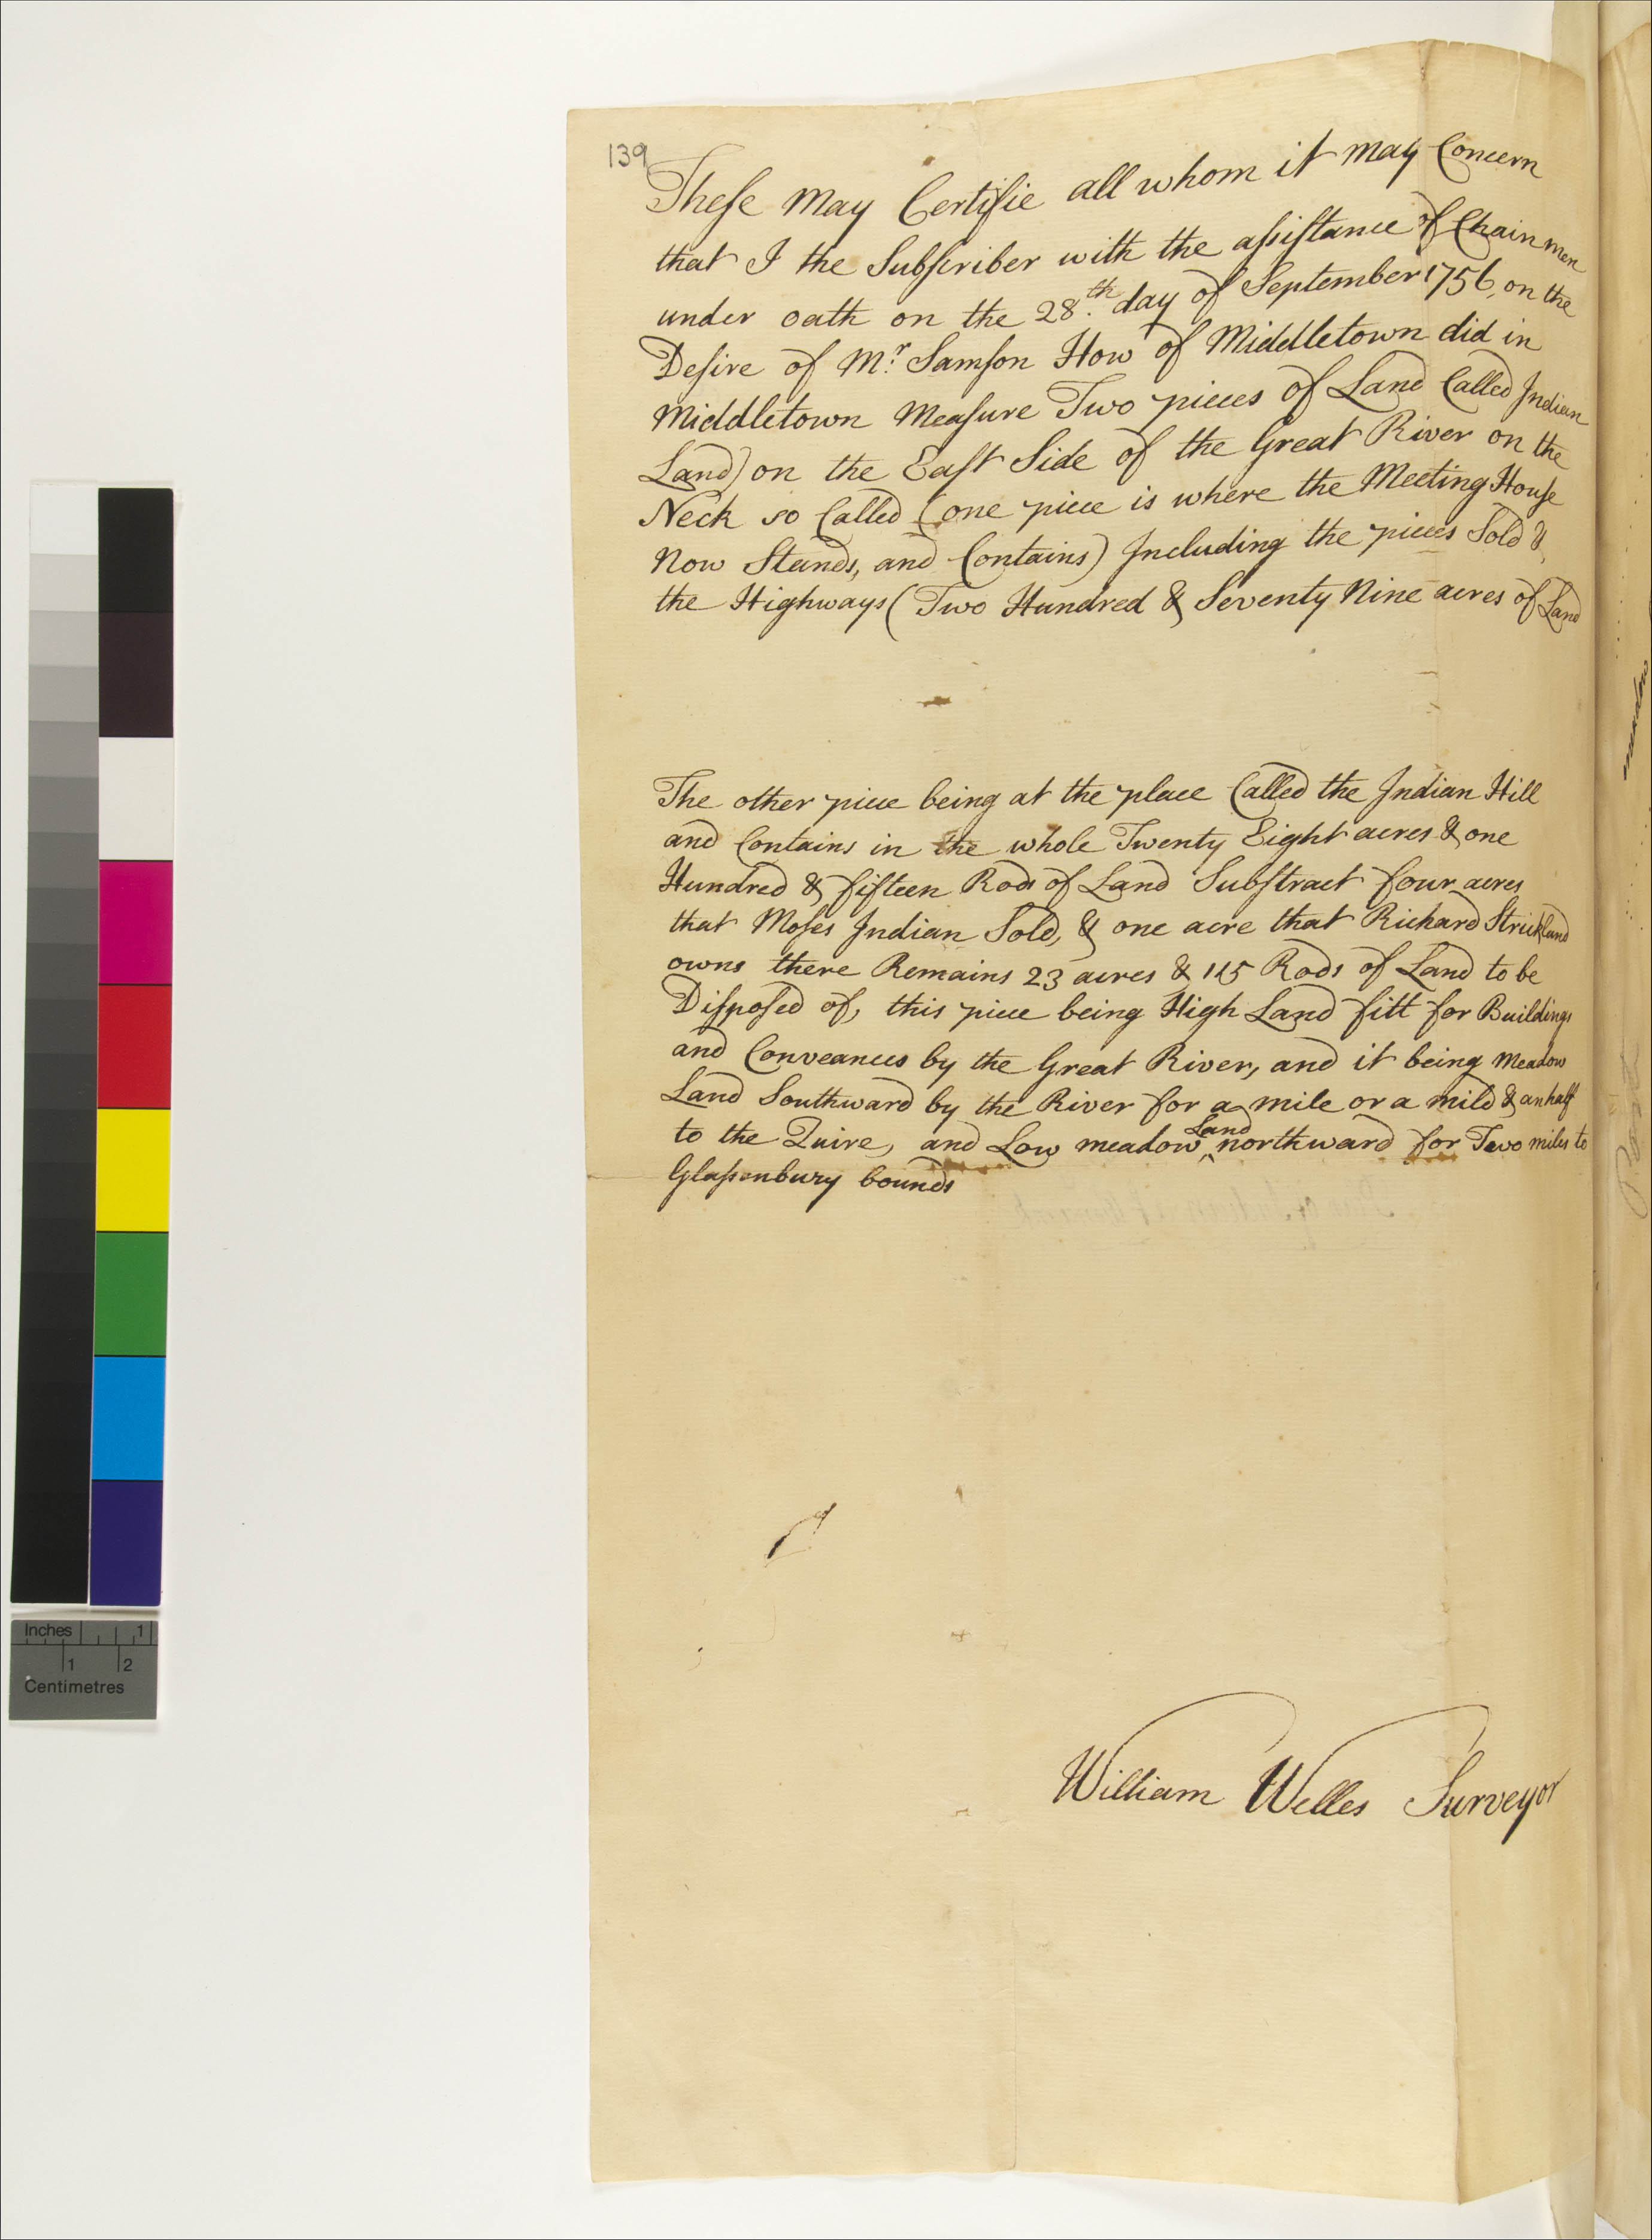 139
These May Certifie all whom it may Concern
that I the Subscriber with the assistance of Chain men
under oath on the 28.th day of September 1756, on the
Desire of Mr. Samson How of Middletown did in
Middletown Measure Two pieces of Land Called Indian
Land) on the East Side of the Great River on the
Neck so Called (one piece is where the Meeting House
Now Stands, and Contains) Including the pieces Sold &
the Highways (Two Hundred & Seventy Nine acres of Land
The other piece being at the place Called the Indian Hill
and Contains in the whole Twenty Eight acres & one
Hundred & fifteen Rods of Land Substract four acres
that Moses Indian Sold, & one acre that Richard Strickland
owns there Remains 23 acres & 115 Rods of Land to be
Disposed of, this piece being High Land fitt for Buildings
and Conveances by the Great River, and it being Meadow
Land Southward by the River for a mile or a mile & an half
to the Quire, and Low meadow Land northward for Two miles to
Glassenbury bounds
William Welles Surveyor
meadow
Inches 1
1 2
Centimetres